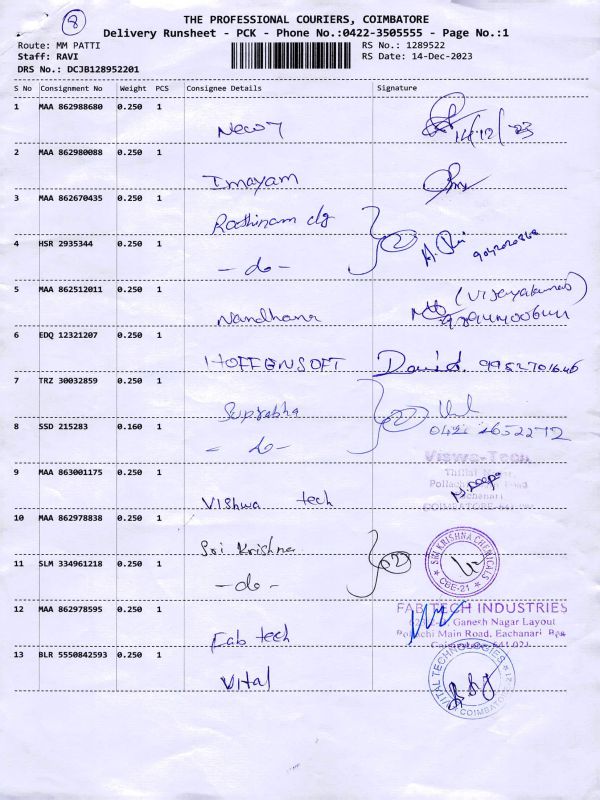 8
THE PROFESSIONAL COURIERS, COIMBATORE
Delivery Runsheet - PCK - Phone No.:0422-3505555 - Page No.:1
Route: MM PATTI
RS No.: 1289522
Staff: RAVI
RS Date: 14-Dec-2023
DRS No.: DCJB128952201
S No Consignment No Weight PCS Consignee Details Signature
1 MAA 862988680 0.250 1
New 7 14/12/23
2 MAA 862980088 0.250 1
Imayam
3 MAA 862670435 0.250 1
Rathinam clg
4 HSR 2935344 0.250 1
2
- do -
5 MAA 862512011 0.250 1
(Vijayakumar)
Nandhana
6 EDQ 12321207 0.250 1
HOFFENSOFT David. 9952701646
7 TRZ 30032859 0.250 1
Suprabha 2
8 SSD 215283 0.160 1
0422 2652272
- do -
Viswa-Tech
9 MAA 863001175 0.250 1
Vishwa tech
10 MAA 862978838 0.250 1
Sri Krishna
SRI KRISHNA CHEMICALS
CBE-21
11 SLM 334961218 0.250 1
02
- do -
12 MAA 862978595 0.250 1
FAB TECH INDUSTRIES
Ganesh Nagar Layout
Main Road, Eachanari
Fab tech
13 BLR 5550842593 0.250 1
Vital
VITAL TECHNOLOGIES
COIMBATORE